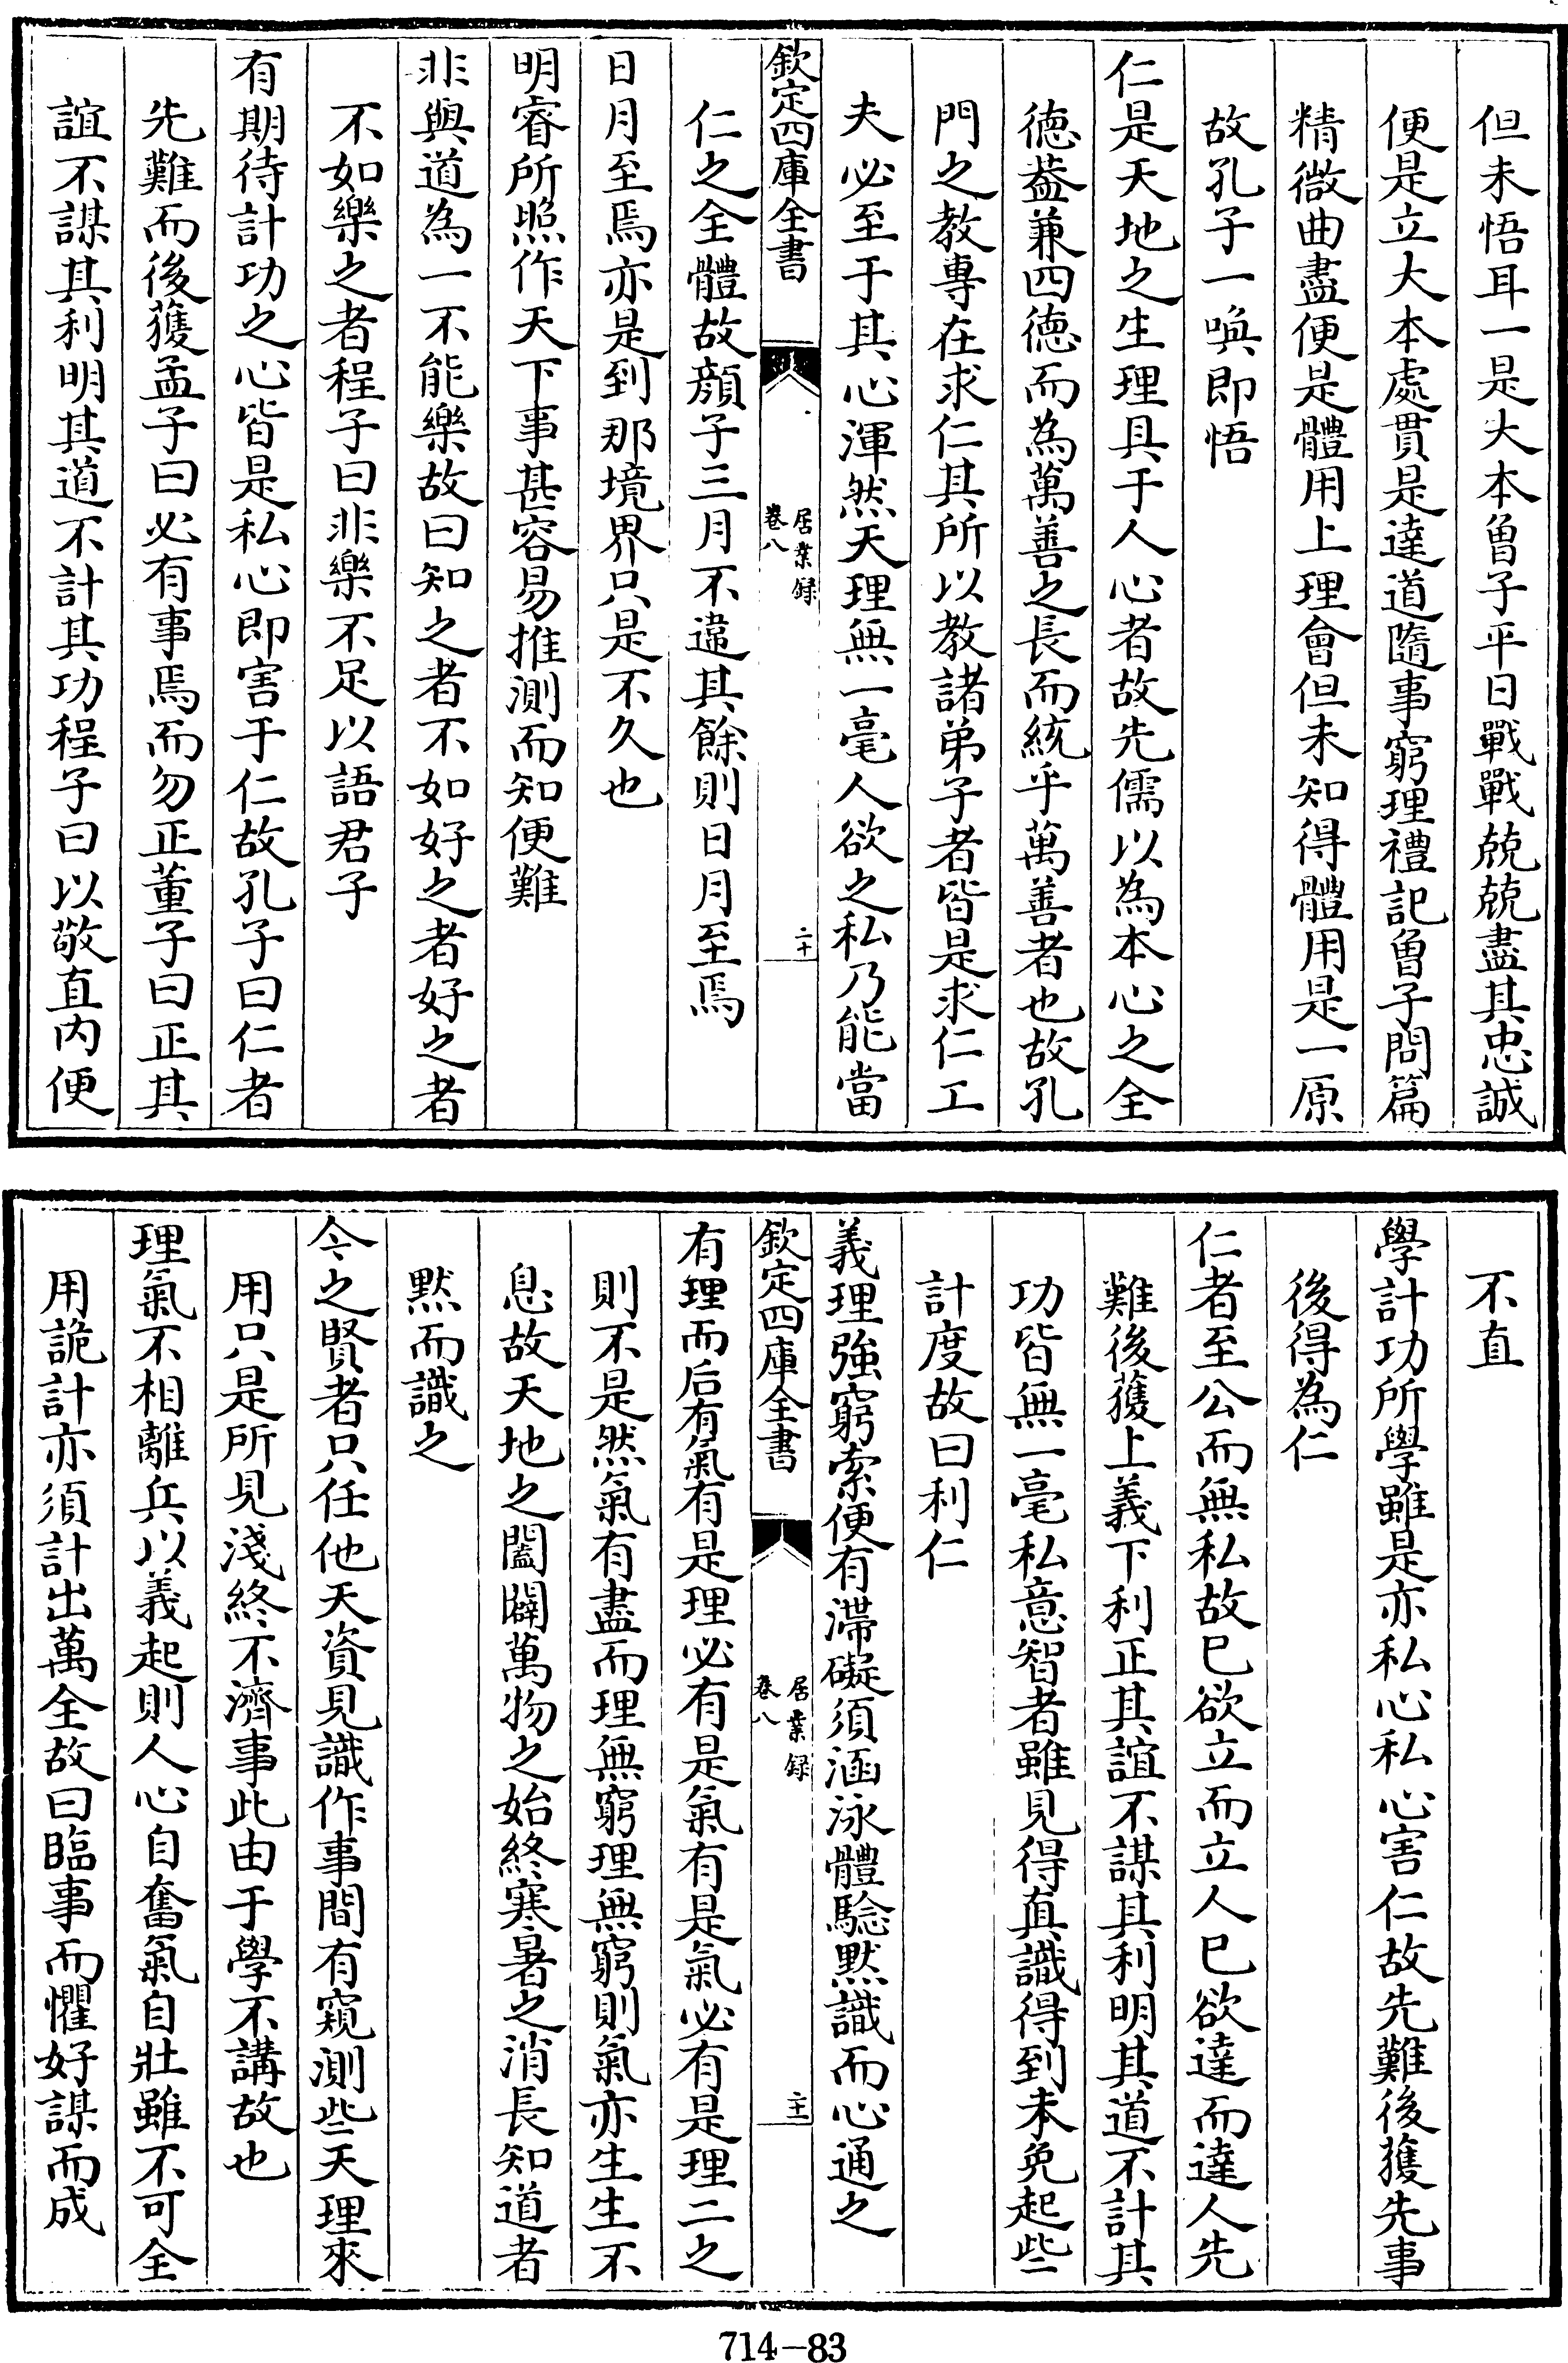 但未悟耳一是大本曾子平日戰戰兢兢盡其忠誠
便是立大本處貫是達道隨事窮理禮記曾子問篇
精微曲盡便是體用上理會但未知得體用是一原
故孔子一喚即悟
仁是天地之生理具于人心者故先儒以為本心之全
德葢兼四德而為萬善之長而統乎萬善者也故孔
門之教專在求仁其所以教諸弟子者皆是求仁工
夫必至于其心渾然天理無一毫人欲之私乃能當
欽定四庫全書
居業録
卷八
二十
仁之全體故顔子三月不違其餘則日月至焉
日月至焉亦是到那境界只是不久也
明睿所照作天下事甚容易推測而知便難
非與道為一不能樂故曰知之者不如好之者好之者
不如樂之者程子曰非樂不足以語君子
有期待計功之心皆是私心即害于仁故孔子曰仁者
先難而後獲孟子曰必有事焉而勿正董子曰正其
誼不謀其利明其道不計其功程子曰以敬直内便
不直
學計功所學雖是亦私心私心害仁故先難後獲先事
後得為仁
仁者至公而無私故已欲立而立人已欲達而達人先
難後獲上義下利正其誼不謀其利明其道不計其
功皆無一毫私意智者雖見得真識得到未免起些
計度故曰利仁
義理強窮索便有滯礙須涵泳體驗默識而心通之
欽定四庫全書
居業録
卷八
二十一
有理而后有氣有是理必有是氣有是氣必有是理二之
則不是然氣有盡而理無窮理無窮則氣亦生生不
息故天地之闔闢萬物之始終寒暑之消長知道者
默而識之
今之賢者只任他天資見識作事間有窺測些天理來
用只是所見淺終不濟事此由于學不講故也
理氣不相離兵以義起則人心自奮氣自壯雖不可全
用詭計亦須計出萬全故曰臨事而懼好謀而成
714-83